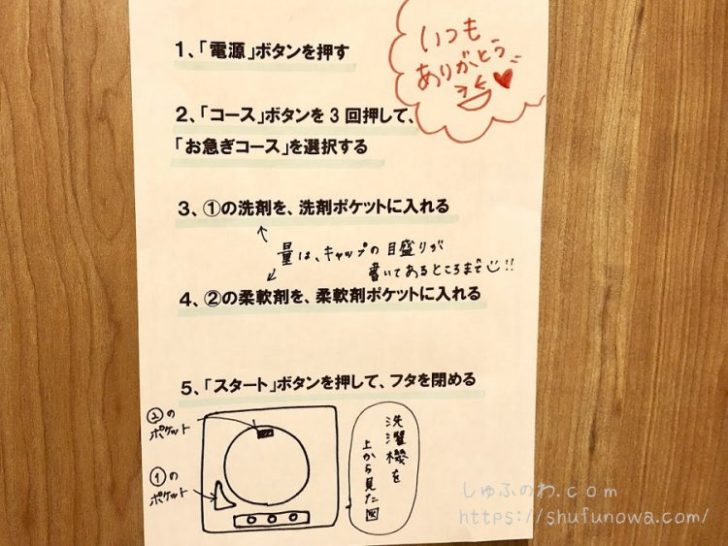 1、「電源」ボタンを押す
いつも
ありがとう
2、「コース」ボタンを3回押して、
「お急ぎコース」を選択する
3、①の洗剤を、洗剤ポケットに入れる
量は、キャップの目盛りが
書いてあるところまで!!
4、②の柔軟剤を、柔軟剤ポケットに入れる
5、「スタート」ボタンを押して、フタを閉める
②の
ポケット
①の
ポケット
洗濯機を
上から見た図
しゅふのわ.com
https://shufunowa.com/